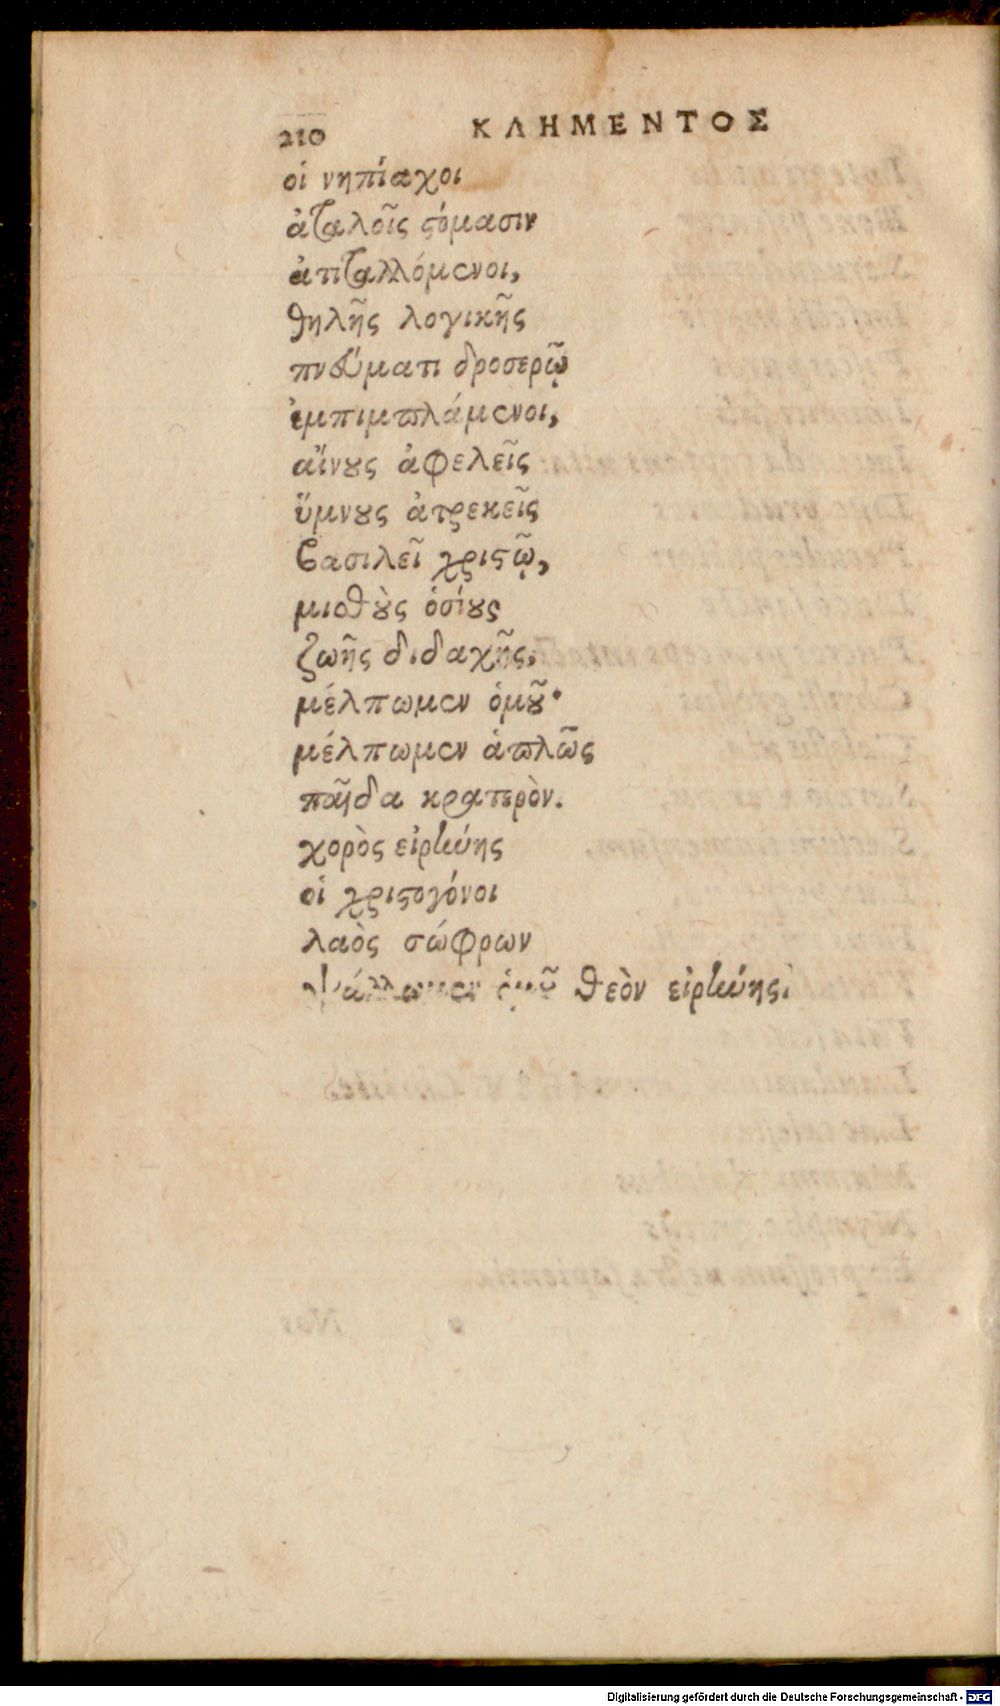 210 ΚΛΗΜΕΝΤΟΣ
οἱ νηπίαχοι
ἀταλοῖς ϛόμασιν
ἀτιταλλόμενοι,
θηλῆς λογικῆς
πνεύματι δροσερῷ
ἐμπιμπλάμενοι,
αἴνους ἀφελεῖς
ὕμνους ἀτρεκεῖς
βασιλεῖ χριϛῷ,
μισθοὺς ὁσίους
ζωῆς διδαχῆς,
μέλπωμεν ὁμοῦ·
μέλπωμεν ἁπλῶς
παῖδα κρατερὸν.
χορὸς εἰρήνης
οἱ χριϛογόνοι
λαὸς σώφρων
ψάλλωμεν ὁμοῦ θεὸν εἰρήνης.
Digitalisierung gefördert durch die Deutsche Forschungsgemeinschaft - DFG